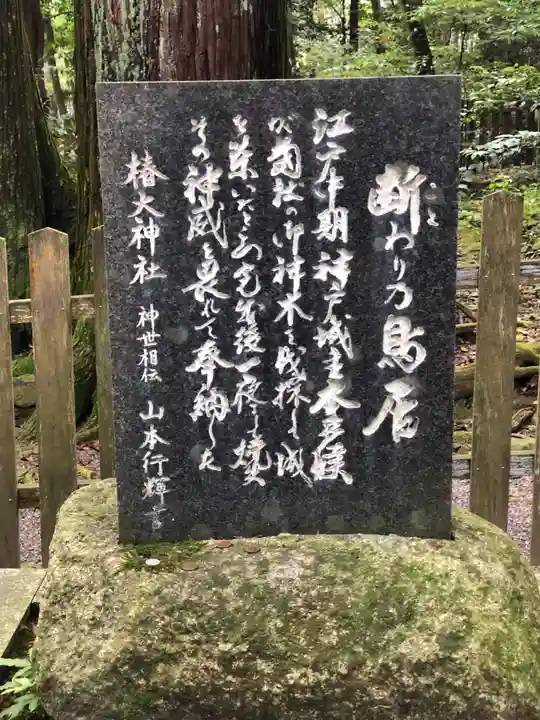 断わりの鳥居
こと
江戸中期神戸城主本多候
が当社の御神木を伐採し城
を築いたるも完成後一夜にして焼失
その神威を畏れて奉納した
椿大神社 神世相伝 山本行輝 書